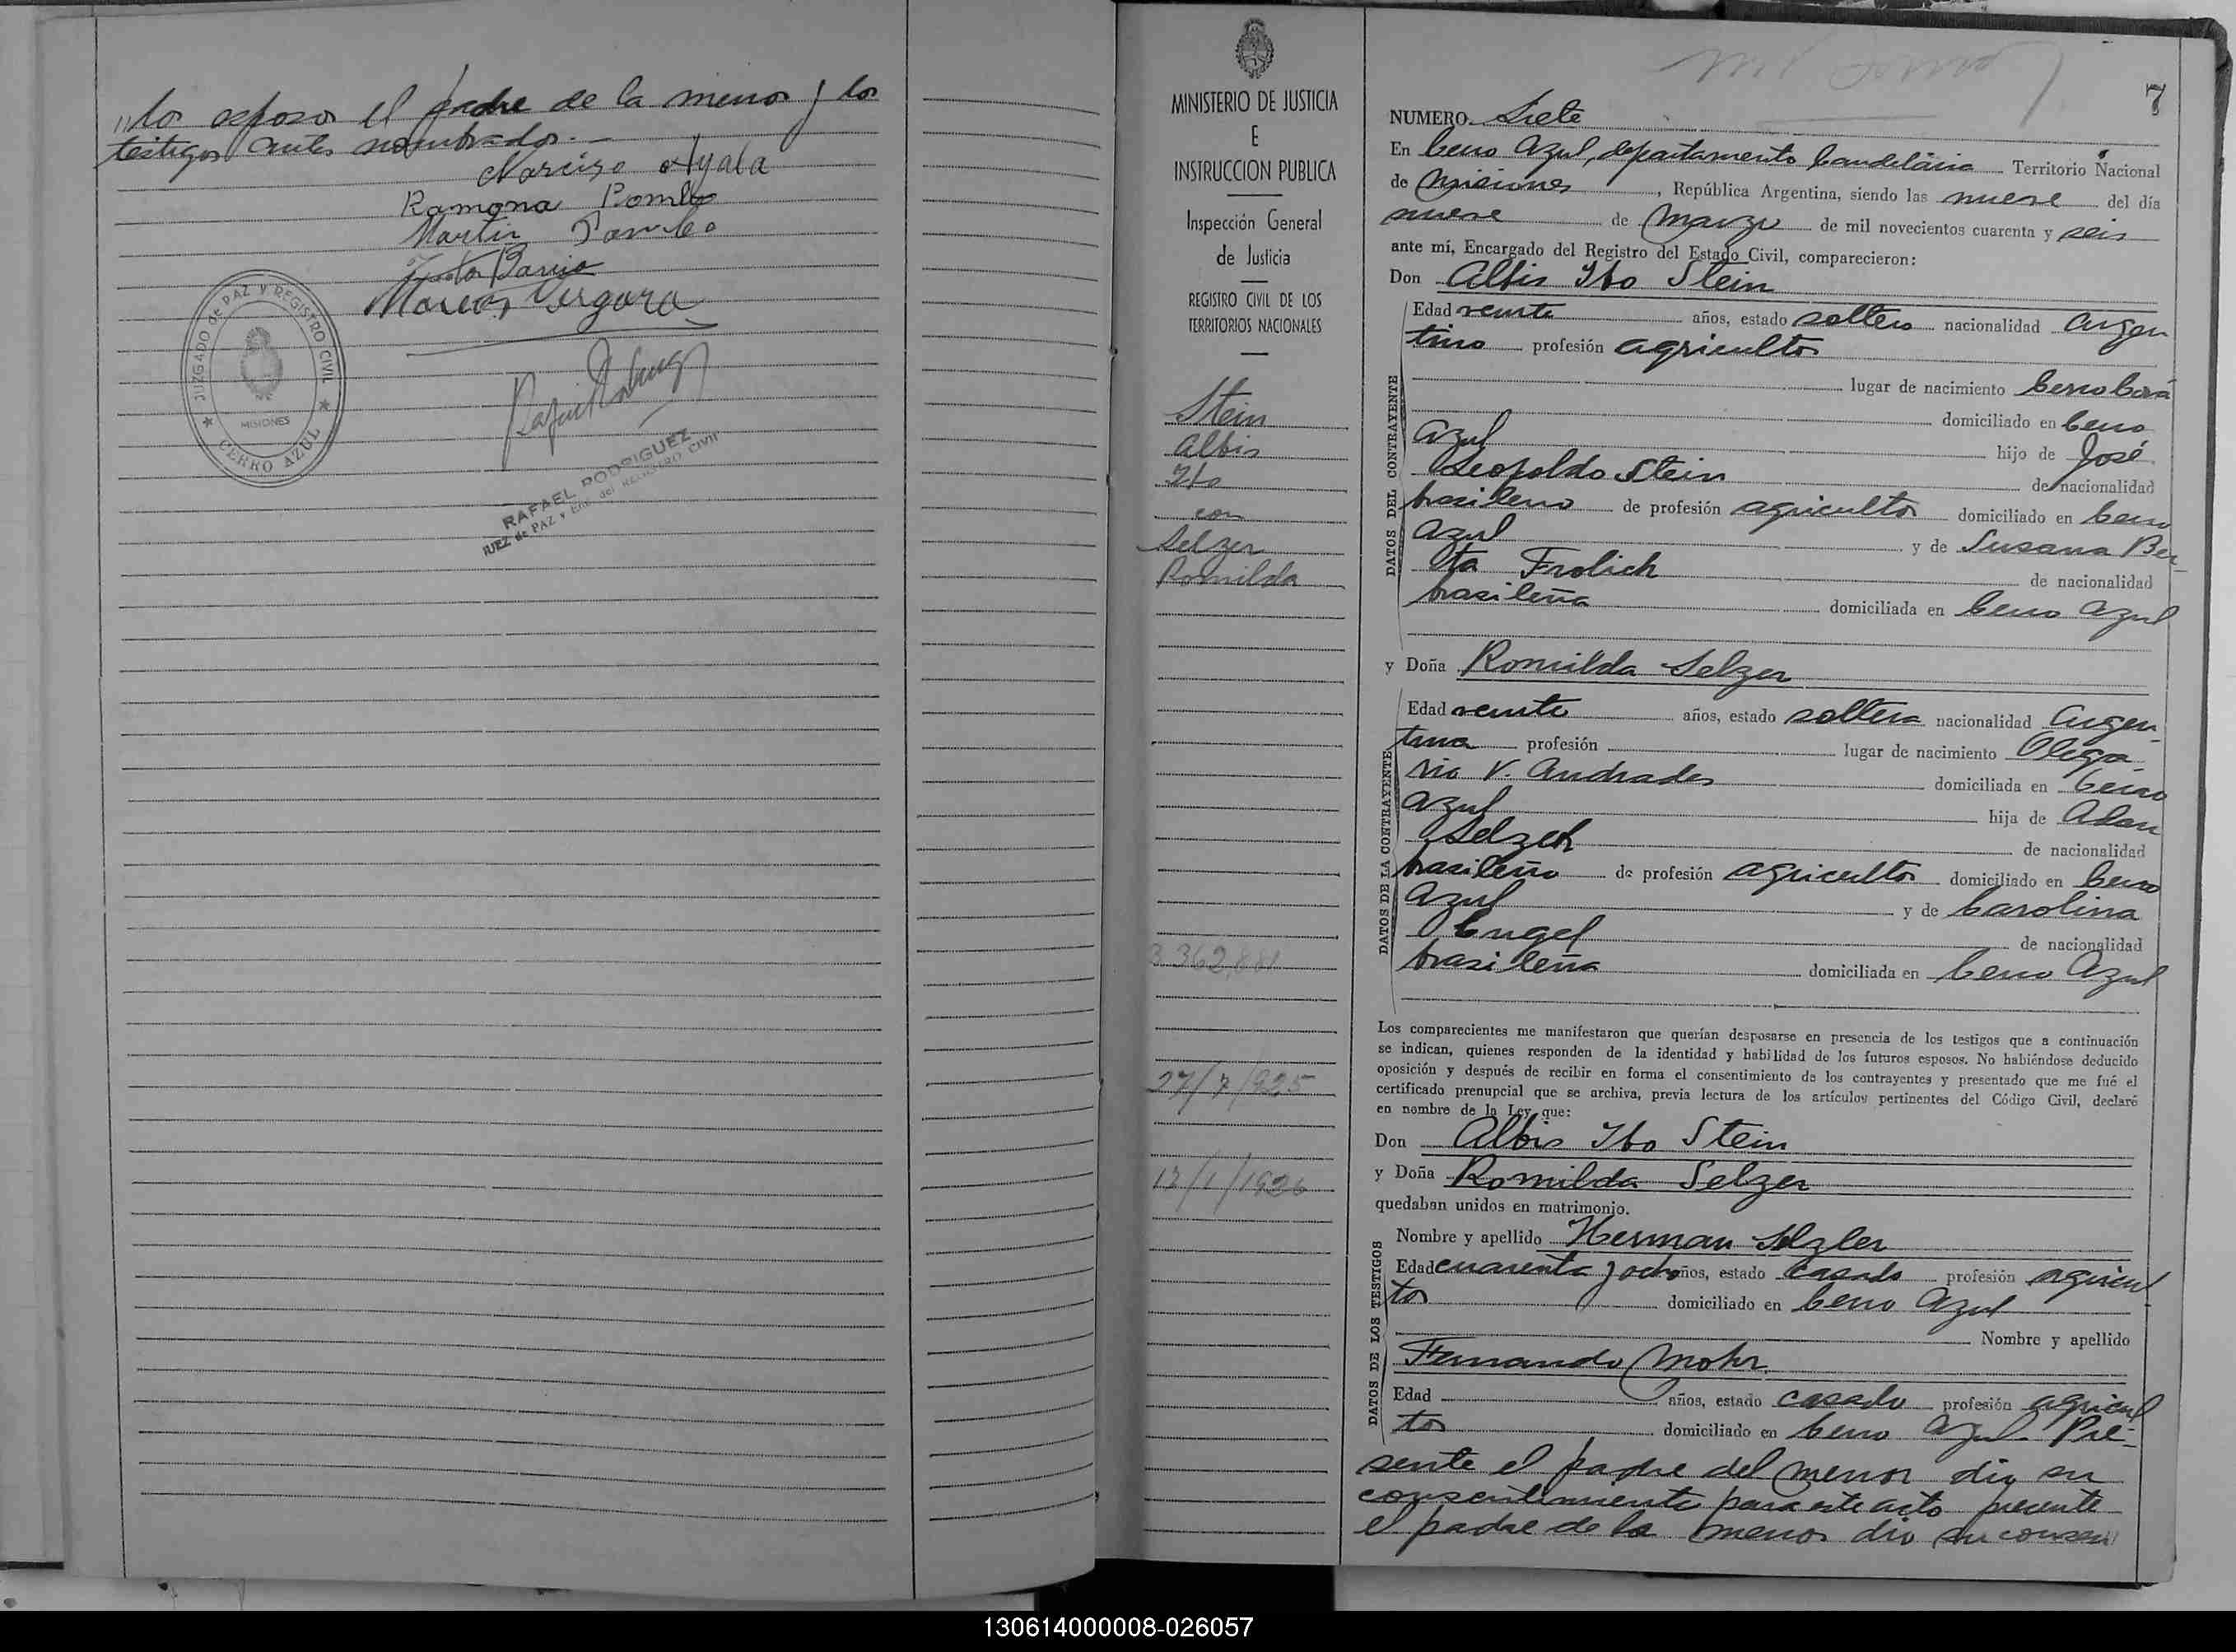 "los esposos el padre de la menor y los
testigos antes nombrados.-
Narciso Ayala
Ramona Pombo
Martin Pombo
Marcos Vergara
JUZGADO de PAZ Y REGISTRO CIVIL
MISIONES
★ CERRO AZUL ★
RAFAEL RODRIGUEZ
JUEZ de PAZ y Enc. del REGISTRO CIVIL
MINISTERIO DE JUSTICIA
E
INSTRUCCION PUBLICA
Inspección General
de Justicia
REGISTRO CIVIL DE LOS
TERRITORIOS NACIONALES
Stein
Albis
Ibo
con
Selzer
Romilda
3.362,881
27/7/925
13/1/1926
7
NUMERO Siete
En Cerro Azul, departamento Candelaria Territorio Nacional
de Misiones, República Argentina, siendo las nueve del día
nueve de Marzo de mil novecientos cuarenta y seis
ante mí, Encargado del Registro del Estado Civil, comparecieron:
Don Albis Ibo Stein
DATOS DEL CONTRAYENTE
Edad veinte años, estado soltero nacionalidad Argen
tino profesión agricultor
lugar de nacimiento Cerro Corá
domiciliado en Cerro
Azul hijo de José
Leopoldo Stein de nacionalidad
brasileno de profesión agricultor domiciliado en Cerro
Azul y de Susana Ber-
ta Frolich de nacionalidad
brasileña domiciliada en Cerro Azul
y Doña Romilda Selzer
DATOS DE LA CONTRAYENTE
Edad veinte años, estado soltera nacionalidad Argen-
tina profesión lugar de nacimiento Olega-
rio V. Andrades domiciliada en Cerro
Azul hija de Adan
Selzer de nacionalidad
brasileño de profesión agricultor domiciliado en Cerro
Azul y de Carolina
Engel de nacionalidad
brasileña domiciliada en Cerro Azul
Los comparecientes me manifestaron que querían desposarse en presencia de los testigos que a continuación
se indican, quienes responden de la identidad y habilidad de los futuros esposos. No habiéndose deducido
oposición y después de recibir en forma el consentimiento de los contrayentes y presentado que me fué el
certificado prenupcial que se archiva, previa lectura de los artículos pertinentes del Código Civil, declaré
en nombre de la Ley que:
Don Albis Ibo Stein
y Doña Romilda Selzer
quedaban unidos en matrimonio.
DATOS DE LOS TESTIGOS
Nombre y apellido Herman Selzler
Edad cuarenta y ocho años, estado casado profesión agricul
tor domiciliado en Cerro Azul
Nombre y apellido
Fernando Mohr
Edad años, estado casado profesión agricul
tor domiciliado en Cerro Azul. Pre-
sente el padre del menor dio su
consentimiento para este acto presente
el padre de la menor dio su consen
130614000008-026057